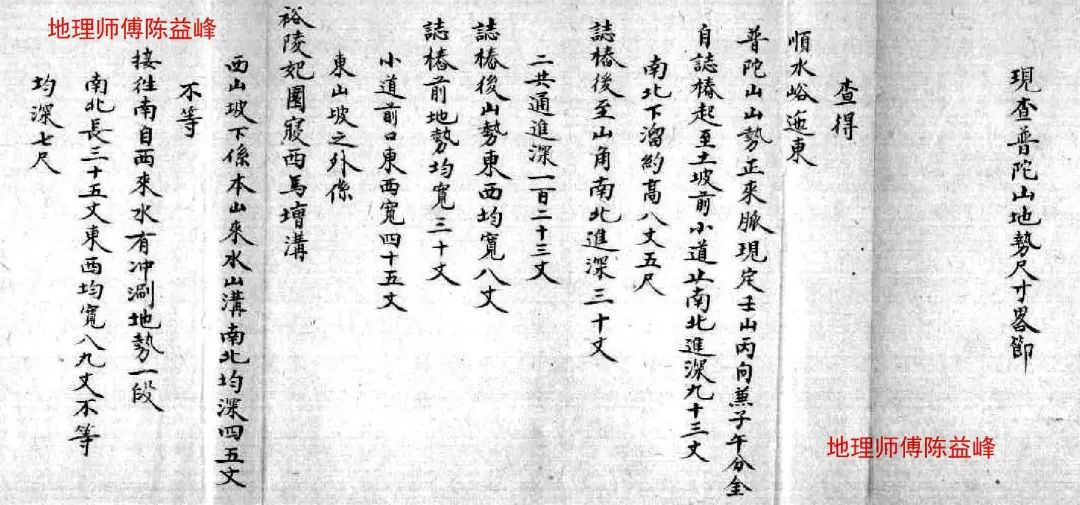 現查普陀山地勢尺寸畧節
查得
順水峪迤東
普陀山山勢正來脈現定壬山丙向兼子午分金
自誌樁起至土坡前小道止南北進深九十三丈
南北下溜約高八丈五尺
誌樁後至山角南北進深三十丈
二共通進深一百二十三丈
誌樁後山勢東西均寬八丈
誌樁前地勢均寬三十丈
小道前口東西寬四十五丈
東山坡之外係
裕陵妃園寢西馬墻溝
西山坡下係本山來水山溝南北均深四五丈
不等
接徃南自西來水有冲涮地勢一段
南北長三十五丈東西均寬八九丈不等
均深七尺
地理师傅陈益峰
地理师傅陈益峰